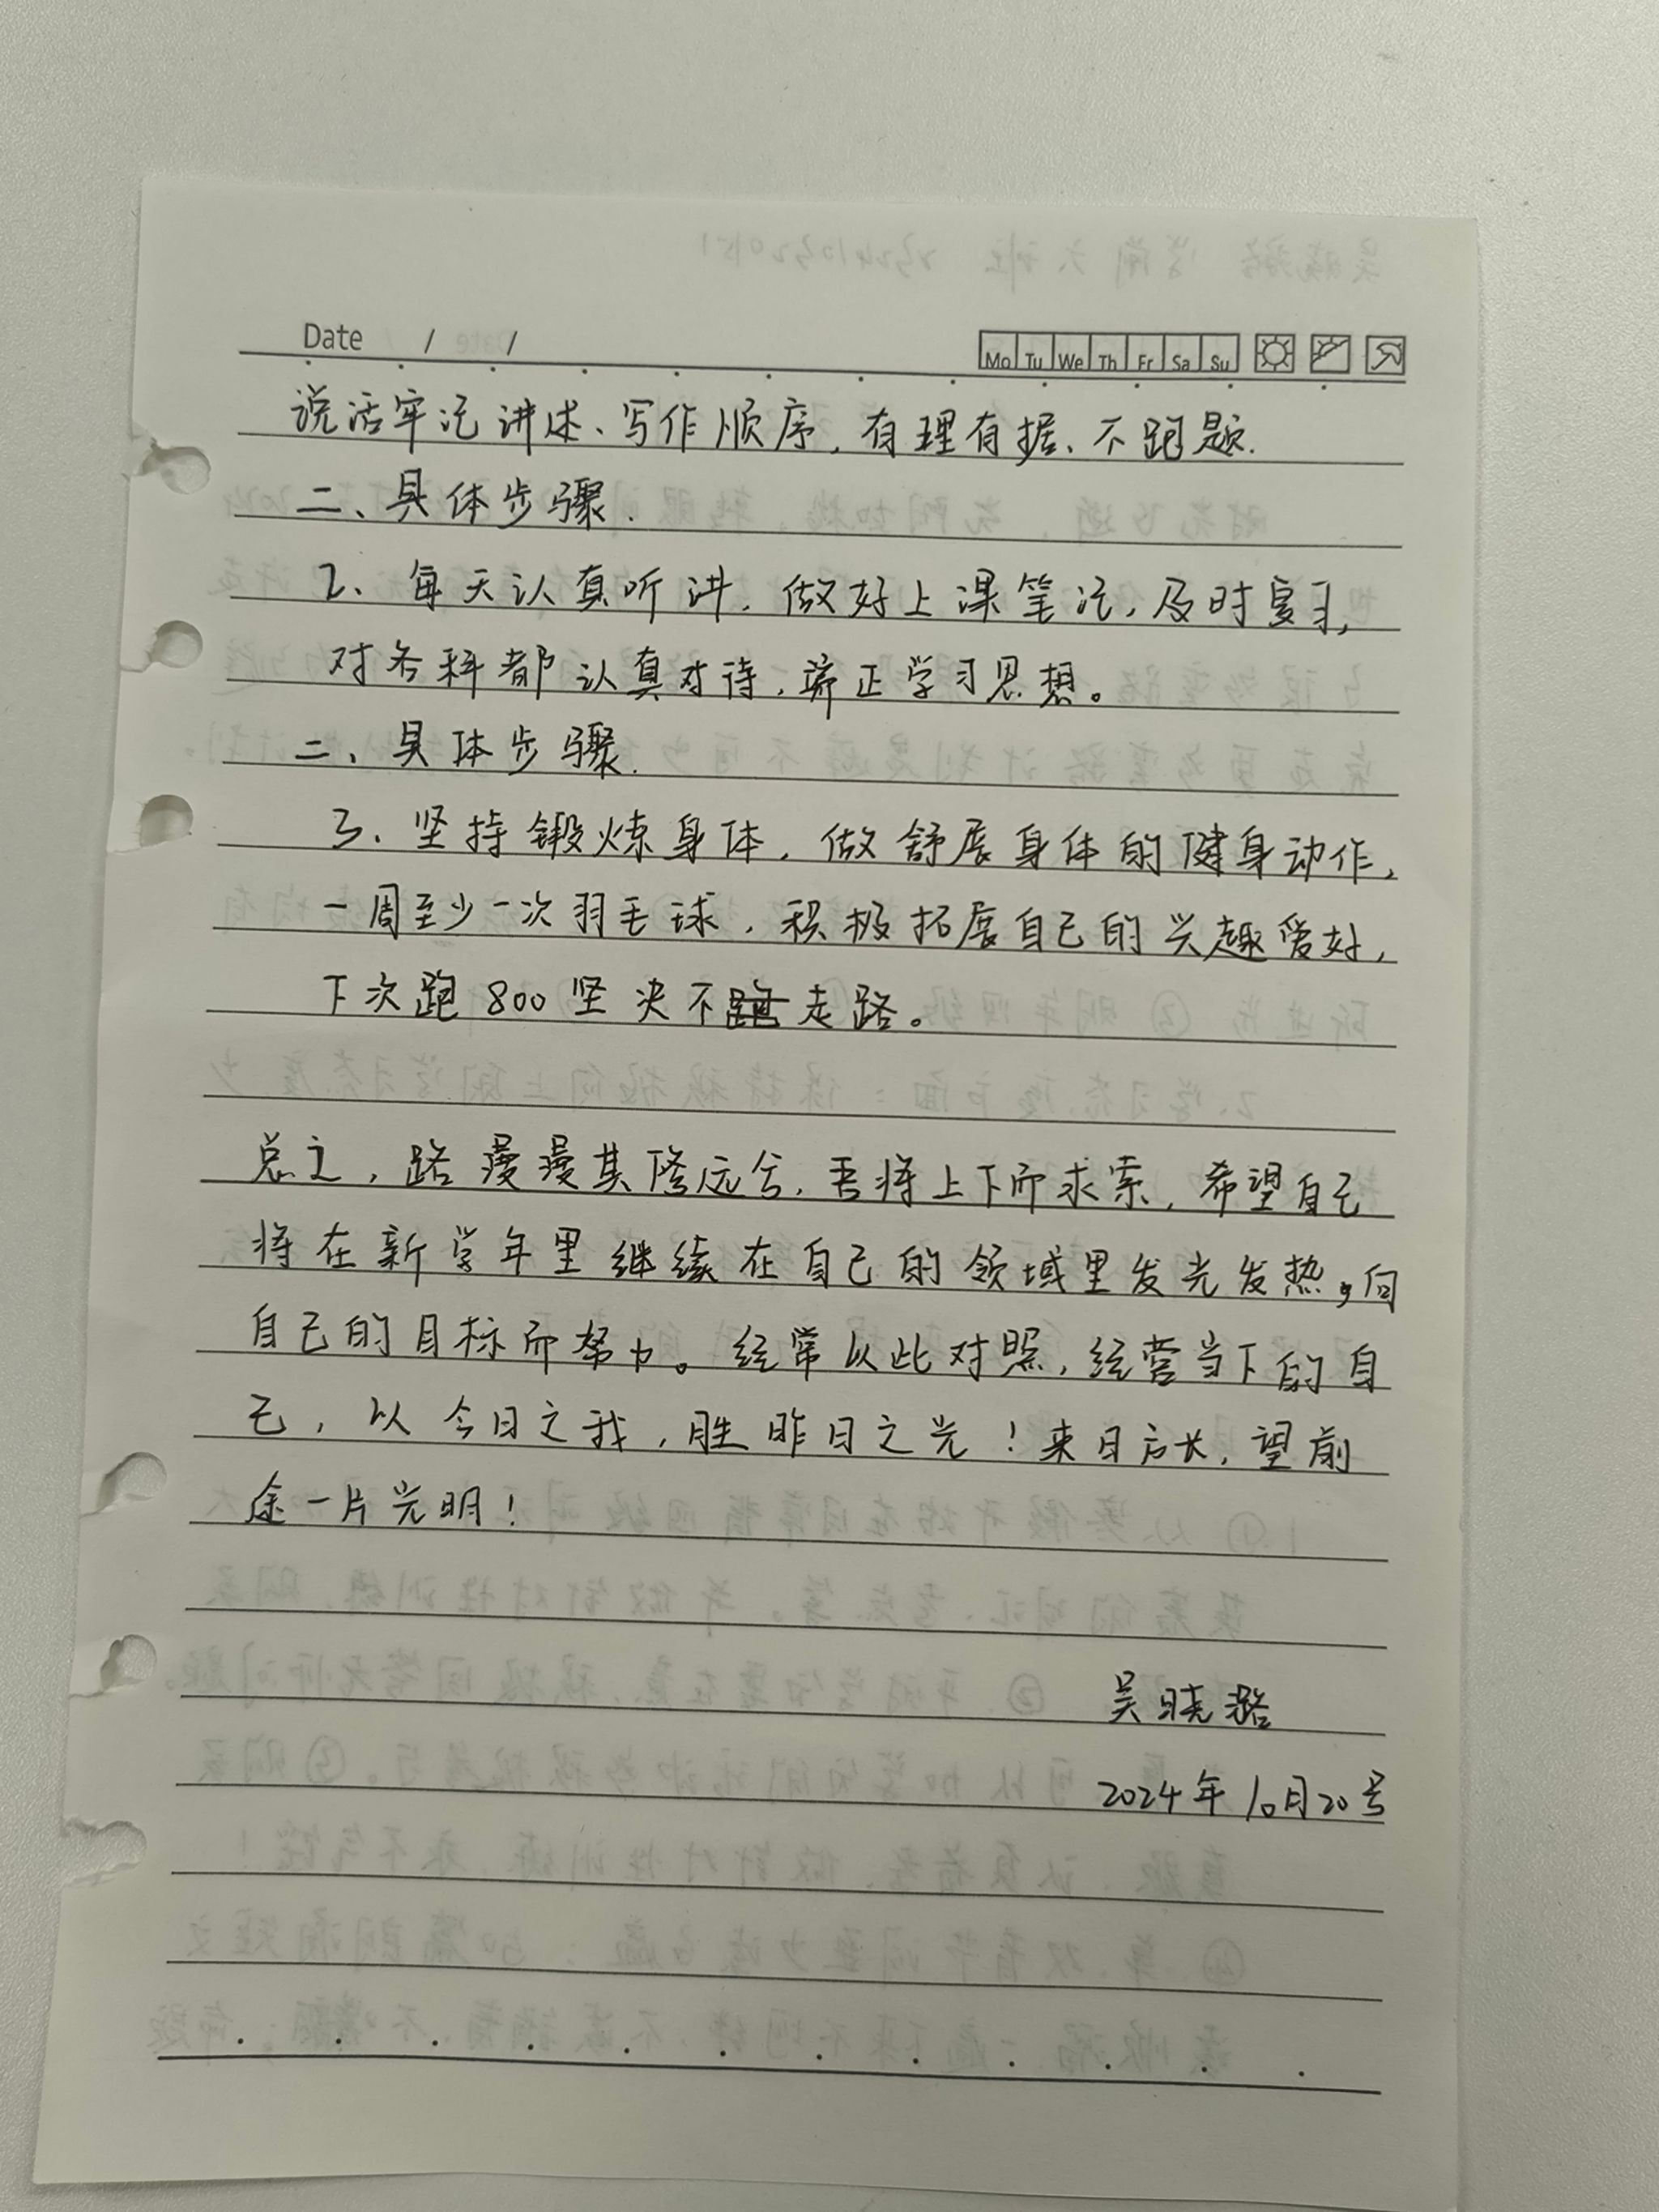 Date / /
Mo Tu We Th Fr Sa Su
说话牢记讲述、写作顺序，有理有据、不跑题.
二、具体步骤.
2、每天认真听讲，做好上课笔记，及时复习，
对各科都认真对待，端正学习思想。
二、具体步骤.
3、坚持锻炼身体，做舒展身体的健身动作，
一周至少一次羽毛球，积极拓展自己的兴趣爱好，
下次跑800坚决不走路。
总之，路漫漫其修远兮，吾将上下而求索，希望自己
将在新学年里继续在自己的领域里发光发热，向
自己的目标而努力。经常以此对照，经营当下的自
己，以今日之我，胜昨日之光！来日方长，望前
途一片光明！
吴晓潞
2024年10月20号